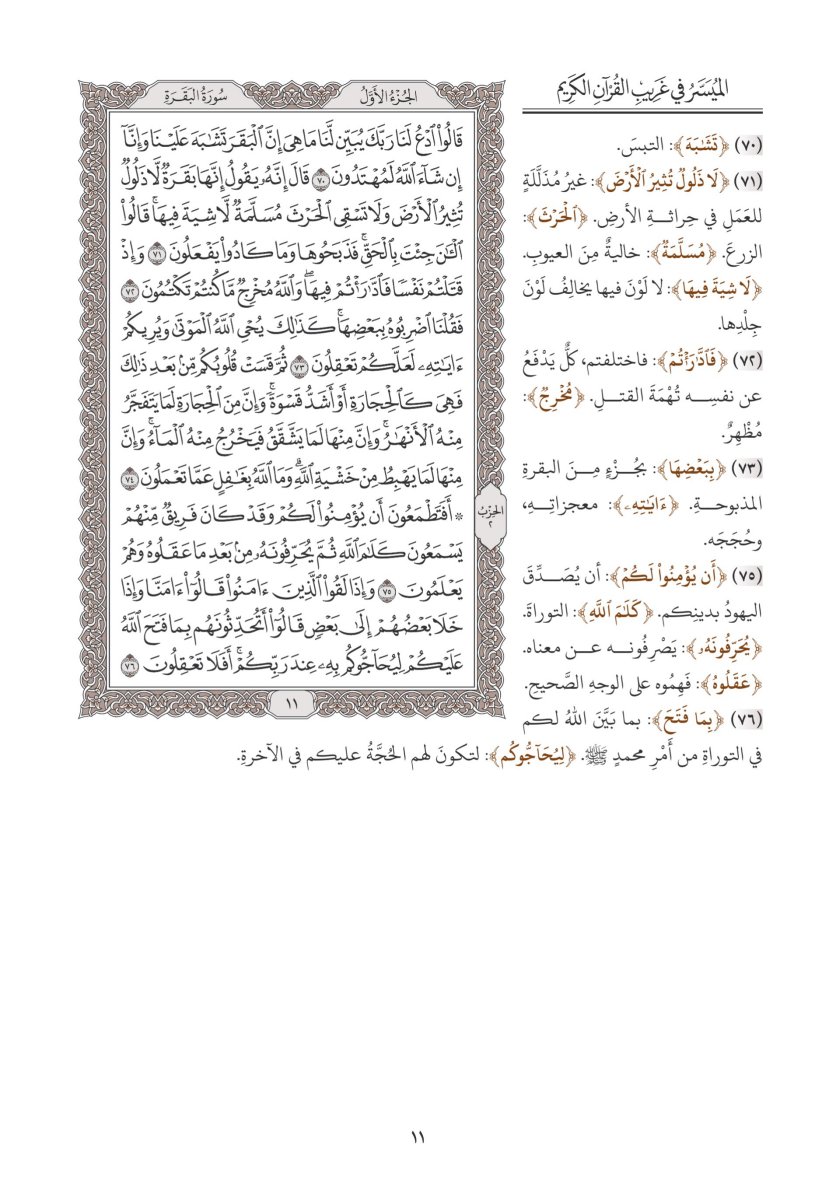 الميسر في غريب القرآن الكريم
(٧٠) ﴿تَشَٰبَهَ﴾: التبسَ.
(٧١) ﴿لَّا ذَلُولٞ تُثِيرُ ٱلۡأَرۡضَ﴾: غيرُ مُذَلَّلَةٍ
للعَمَلِ في حِراثــةِ الأرضِ. ﴿ٱلۡحَرۡثَ﴾:
الزرعَ. ﴿مُسَلَّمَةٞ﴾: خاليةٌ مِنَ العيوبِ.
﴿لَّا شِيَةَ فِيهَا﴾: لا لَوْنَ فيها يخالِفُ لَوْنَ
جِلْدِها.
(٧٢) ﴿فَٱدَّٰرَٰٔتُمۡ﴾: فاختلفتم، كلٌّ يَدْفَعُ
عن نفسِــه تُهْمَةَ القتــلِ. ﴿مُخۡرِجٞ﴾:
مُظْهِرٌ.
(٧٣) ﴿بِبَعۡضِهَا﴾: بجُــزْءٍ مِــنَ البقرةِ
المذبوحــةِ. ﴿ءَايَٰتِهِۦ﴾: معجزاتِــهِ،
وحُجَجَه.
(٧٥) ﴿أَن يُؤۡمِنُواْ لَكُمۡ﴾: أن يُصَــدِّقَ
اليهودُ بدينِكم. ﴿كَلَٰمَ ٱللَّهِ﴾: التوراةَ.
﴿يُحَرِّفُونَهُۥ﴾: يَصْرِفُونــه عــن معناه.
﴿عَقَلُوهُ﴾: فَهِمُوه على الوجهِ الصَّحيحِ.
(٧٦) ﴿بِمَا فَتَحَ﴾: بما بَيَّنَ اللهُ لكم
في التوراةِ من أَمْرِ محمدٍ ﷺ. ﴿لِيُحَآجُّوكُم﴾: لتكونَ لهم الحُجَّةُ عليكم في الآخرةِ.
الجُزْءُ الأَوَّلُ سُورَةُ البَقَرَةِ
قَالُواْ ٱدۡعُ لَنَا رَبَّكَ يُبَيِّن لَّنَا مَا هِيَ إِنَّ ٱلۡبَقَرَ تَشَٰبَهَ عَلَيۡنَا وَإِنَّآ
إِن شَآءَ ٱللَّهُ لَمُهۡتَدُونَ ٧٠ قَالَ إِنَّهُۥ يَقُولُ إِنَّهَا بَقَرَةٞ لَّا ذَلُولٞ
تُثِيرُ ٱلۡأَرۡضَ وَلَا تَسۡقِي ٱلۡحَرۡثَ مُسَلَّمَةٞ لَّا شِيَةَ فِيهَاۚ قَالُواْ
ٱلۡـَٰٔنَ جِئۡتَ بِٱلۡحَقِّۚ فَذَبَحُوهَا وَمَا كَادُواْ يَفۡعَلُونَ ٧١ وَإِذۡ
قَتَلۡتُمۡ نَفۡسٗا فَٱدَّٰرَٰٔتُمۡ فِيهَاۖ وَٱللَّهُ مُخۡرِجٞ مَّا كُنتُمۡ تَكۡتُمُونَ ٧٢
فَقُلۡنَا ٱضۡرِبُوهُ بِبَعۡضِهَاۚ كَذَٰلِكَ يُحۡيِ ٱللَّهُ ٱلۡمَوۡتَىٰ وَيُرِيكُمۡ
ءَايَٰتِهِۦ لَعَلَّكُمۡ تَعۡقِلُونَ ٧٣ ثُمَّ قَسَتۡ قُلُوبُكُم مِّنۢ بَعۡدِ ذَٰلِكَ
فَهِيَ كَٱلۡحِجَارَةِ أَوۡ أَشَدُّ قَسۡوَةٗۚ وَإِنَّ مِنَ ٱلۡحِجَارَةِ لَمَا يَتَفَجَّرُ
مِنۡهُ ٱلۡأَنۡهَٰرُۚ وَإِنَّ مِنۡهَا لَمَا يَشَّقَّقُ فَيَخۡرُجُ مِنۡهُ ٱلۡمَآءُۚ وَإِنَّ
مِنۡهَا لَمَا يَهۡبِطُ مِنۡ خَشۡيَةِ ٱللَّهِۗ وَمَا ٱللَّهُ بِغَٰفِلٍ عَمَّا تَعۡمَلُونَ ٧٤
۞ أَفَتَطۡمَعُونَ أَن يُؤۡمِنُواْ لَكُمۡ وَقَدۡ كَانَ فَرِيقٞ مِّنۡهُمۡ
يَسۡمَعُونَ كَلَٰمَ ٱللَّهِ ثُمَّ يُحَرِّفُونَهُۥ مِنۢ بَعۡدِ مَا عَقَلُوهُ وَهُمۡ
يَعۡلَمُونَ ٧٥ وَإِذَا لَقُواْ ٱلَّذِينَ ءَامَنُواْ قَالُوٓاْ ءَامَنَّا وَإِذَا
خَلَا بَعۡضُهُمۡ إِلَىٰ بَعۡضٖ قَالُوٓاْ أَتُحَدِّثُونَهُم بِمَا فَتَحَ ٱللَّهُ
عَلَيۡكُمۡ لِيُحَآجُّوكُم بِهِۦ عِندَ رَبِّكُمۡۚ أَفَلَا تَعۡقِلُونَ ٧٦
الحِزْبُ
٢
١١
١١